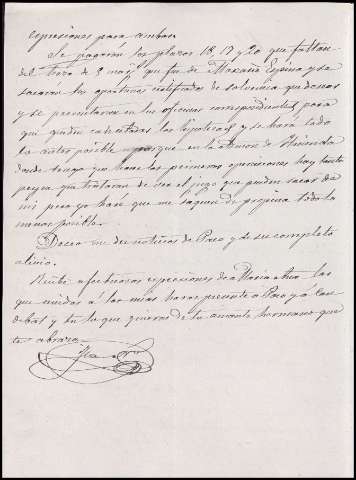 expresiones para ambos
Se pagarán los plazos 18, 19 y 20 que faltan
del de 8 que fue de Mariano Espina y se
sacarán los oportunos certificados de solvencia
y se presentarán en las oficinas correspondientes para
que queden canceladas las hipotecas y se hará todo
lo antes posible aunque en la de Hacienda
donde tengo que hacer las primeras operaciones hay tanto
que tratarán de ver el jugo que pueden sacar de
mí pero yo haré que me saquen de propina todo lo
menos posible.
Deseo me des noticias de Paco y de su completo
alivio.
Recibe afectuosas expresiones de María Ana las
que unidas a las mías harás presente a Paco y á
y tu lo que quieras de tu amante hermano que
te abraza